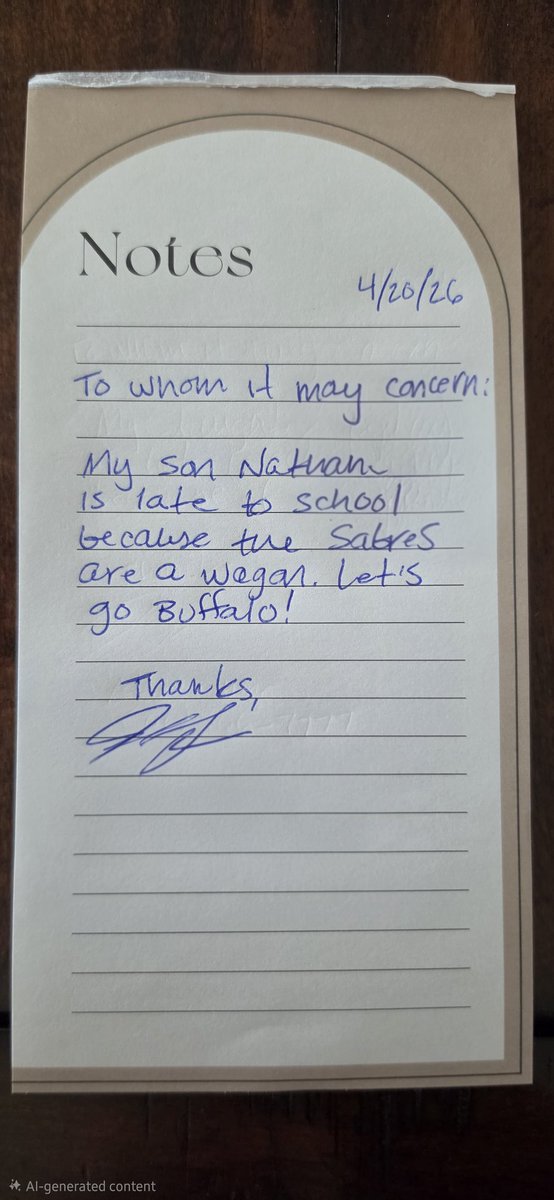 Notes
4/20/26
To whom it may concern:
My son Nathan
is late to school
because the Sabres
are a wagon. Let's
go Buffalo!
Thanks,
AI-generated content